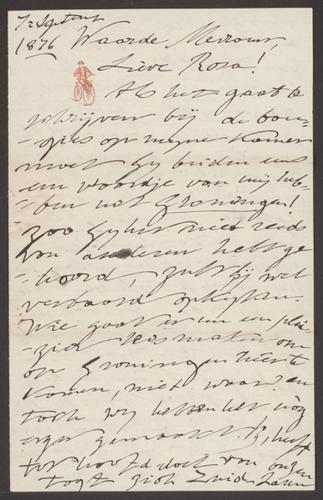 7 Septemb
1896 Waarde Mevrouw,
Lieve Rosa!
Als het gaat te
schrijven bij de bou-
-gies op mijne kamer
moet gij beiden eens
een woordje van mij heb-
ben uit Groningen!
Zoo gij het niet reeds
van anderen hebt ge-
-hoord, zult gij wel
verbaasd opkijken.
Wie gaat er nu een plei-
zier reis maken om
op Groningen neer te
komen, niet waar, en
toch wij hebben het nog
erger gemaakt. Gij heeft
tot hoofd doel van onzen
togt zich Zuid Laren